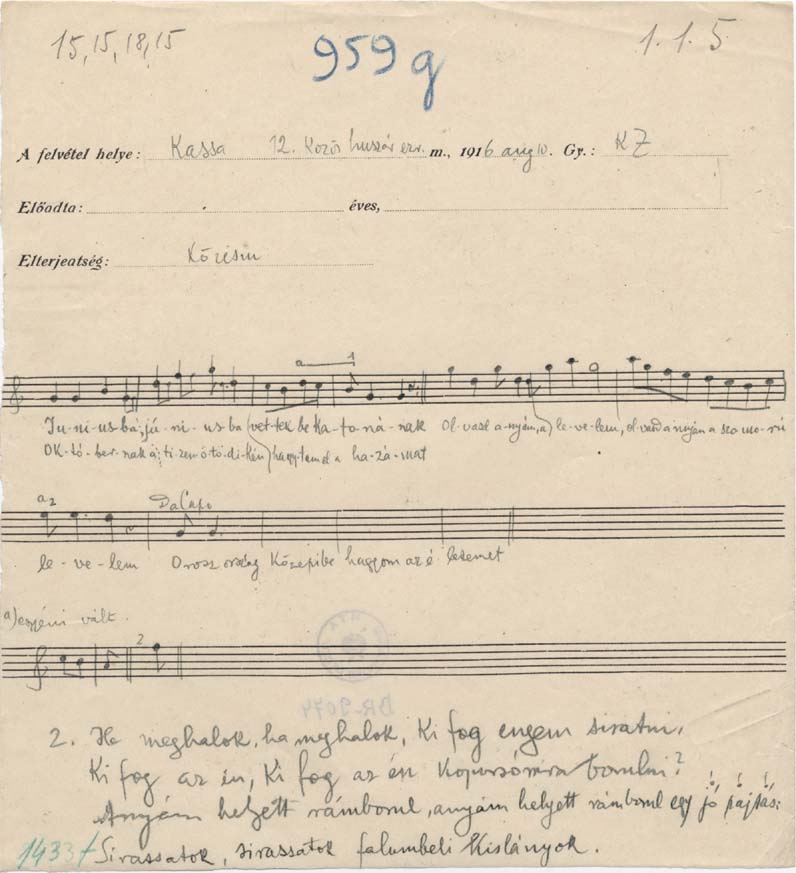 15, 15, 18, 15
959 g
1. 1. 5
A felvétel helye: Kassa 12. közös huszár ezr. m., 1916 aug 10. Gy.: KZ
Előadta: éves,
Elterjeatség: közism
a 1
Ju-ni-us-ba, jú-ni-us-ba (vet-tek be ka-to-ná-nak Ol-vasd a-nyám, a) le-ve-lem, olvasd anyám a szo-mo-rú
Ok-tó-ber-nak a, ti-zen-ö-tö-di-kén) hagy-tam el a ha-zá-mat
a2
Da Capo
le-ve-lem Orosz ország közepibe hagyom az é letemet
a) egyéni vált.
2
DR-9074
2. Ha meghalok, ha meghalok, ki fog engem siratni,
Ki fog az én, ki fog az én koporsómra borulni?
Anyám helyett rámborul, anyám helyett rámborul egy jó pajtás:
1433 f Sirassatok, sirassatok falumbeli kislányok.